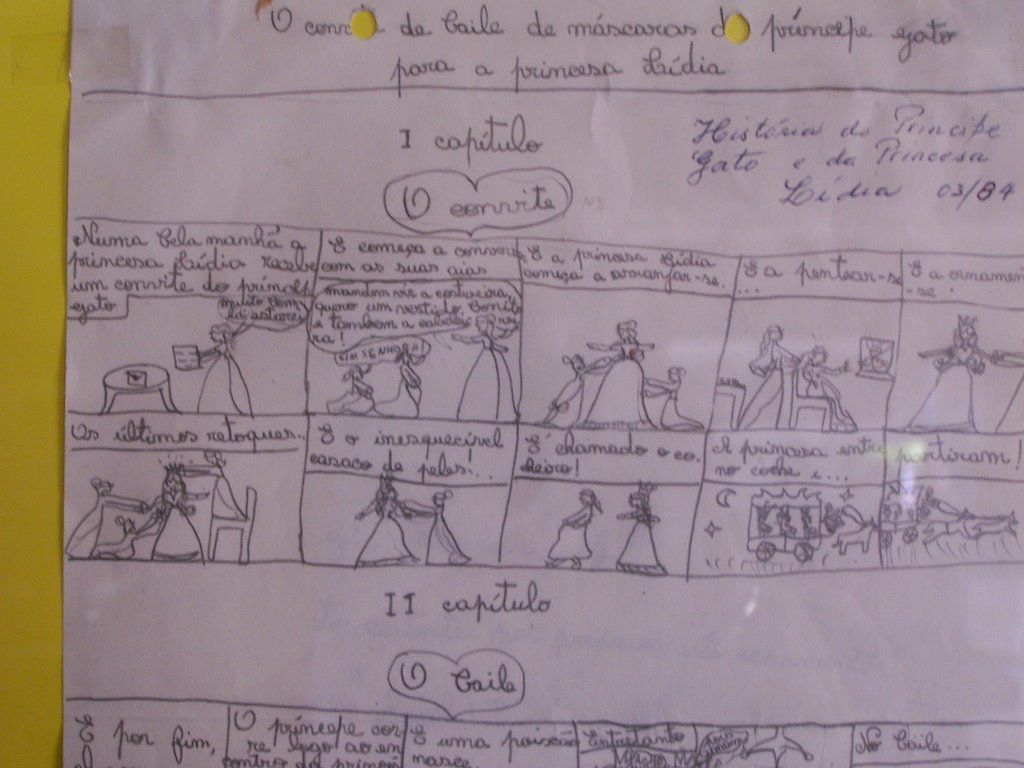 O de baile de máscaras do príncipe gato
para a princesa Lídia
História do Principe
Gato e da Princesa
Lídia 03/84
I capítulo
O convite
Numa bela manhã a
princesa Lídia recebe
um convite do príncipe
gato
muito bem
lá estarei
E começa a conversar
com as suas aias
mandem vir a costureira,
quero um vestido bonito
e também a cabelei
ra!
SIM SENHORA!
E a princesa Lídia
começa a arranjar-se.
E a pentear-se
...
E a ornamen
-se.
Os últimos retoques..
E o inesquecível
casaco de peles!..
É chamado o co-
cheiro!
A princesa entra
no coche e...
partiram!
II capítulo
O baile
E por fim,
O príncipe cor
re logo ao en
contro da
E uma paixão
nasce
Entretanto
No baile...